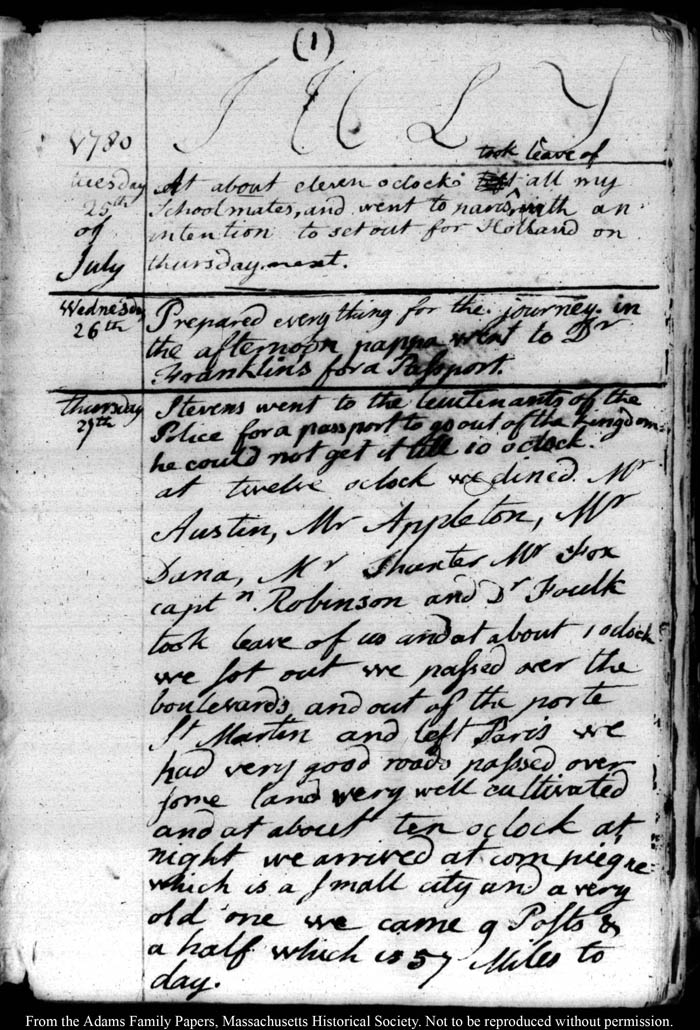 (1)
JULY
1780
took leave of
tuesday
25th
of
July
At about eleven oclock all my
Schoolmates, and went to paris, with an
intention to set out for Holland on
thursday next.
Wednesday
26th
Prepared every thing for the journey. in
the afternoon pappa went to Dr
Franklins for a Passport.
thursday
27th
Stevens went to the leutenants of the
Police for a passport to go out of the kingdom
he could not get it till 10 oclock.
at twelve oclock we dined. Mr
Austin, Mr Appleton, Mr
Dana, Mr Mr Fox
captn Robinson and Dr Foulk
took leave of us and at about 1 oclock
we sot out we passed over the
boulevards, and out of the porte
St Martin and left Paris we
had very good roads passed over
some land very well cultivated
and at about ten oclock at
night we arrived at compiegne
which is a small city and a very
old one we came 9 Posts &
a half which is 57 Miles to
day.
From the Adams Family Papers, Massachusetts Historical Society. Not to be reproduced without permission.